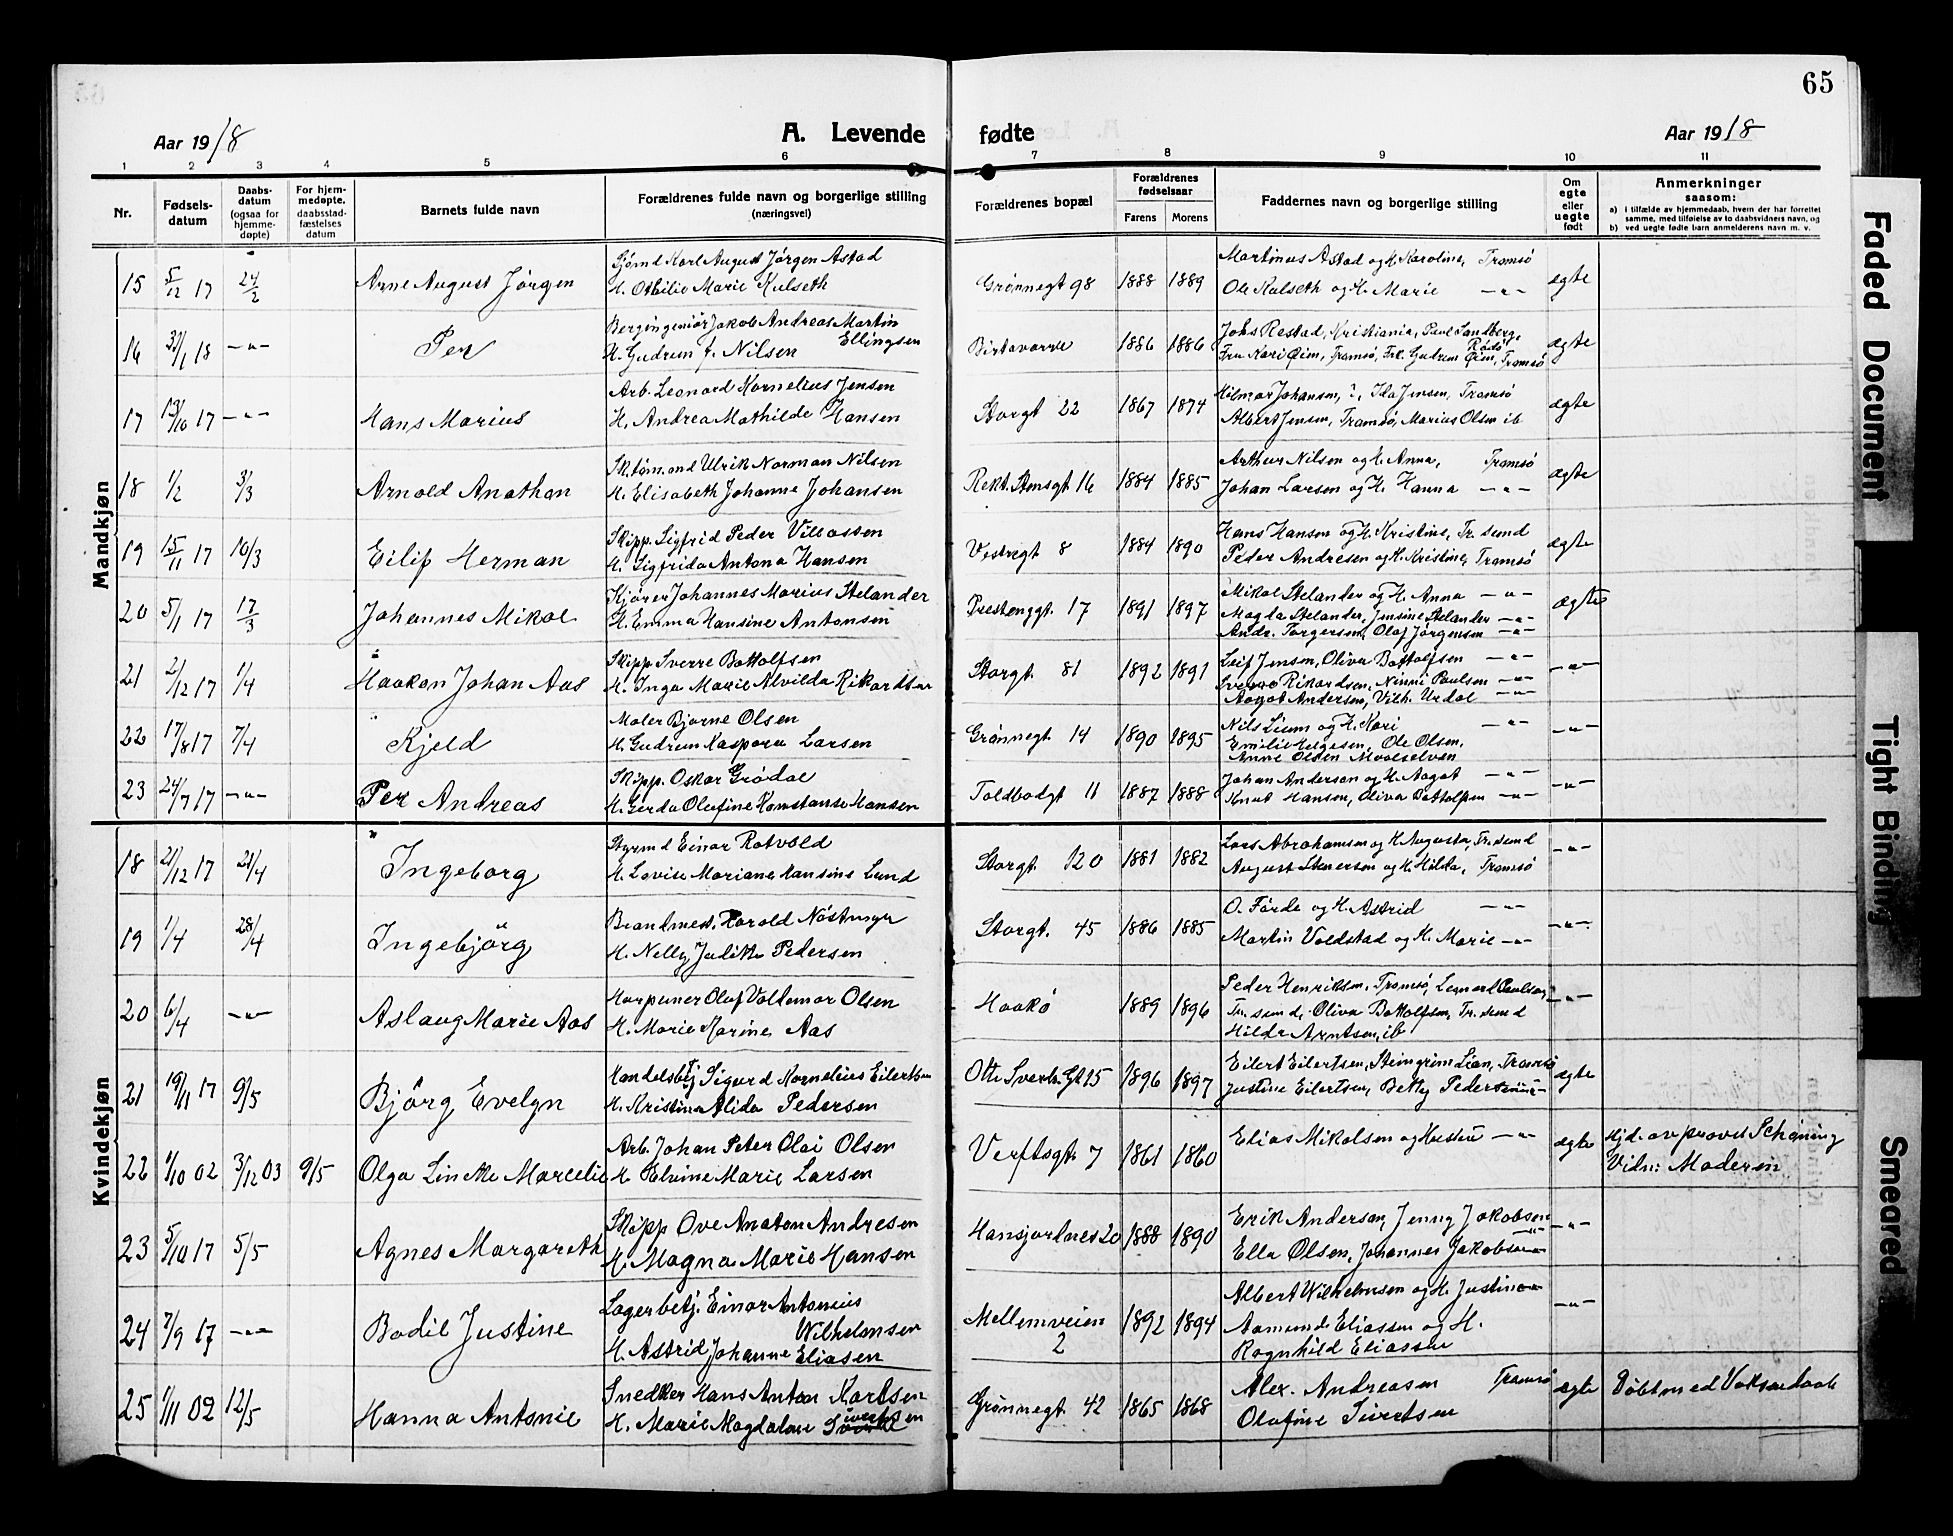 65
Aar 1918 A. Levende fødte Aar 1918
1 2 3 4 5 6 7 8 9 10 11
Nr.
Fødsels-
datum
Daabs-
datum
(ogsaa for
hjemme-
døpte)
For hjem-
medøpte.
daabsstad-
fæstelses
datum
Barnets fulde navn
Forældrenes fulde navn og borgerlige stilling
(næringsvei)
Forældrenes bopæl
Forældrenes
fødselsaar
Farens Morens
Faddernes navn og borgerlige stilling
Om
egte
eller
uegte
født
Anmerkninger
saasom:
a) i tilfælde av hjemmedaab, hvem der har forrettet
samme, med tilføielse av to daabsvidners navn, og
b) ved uegte fødte barn anmelderens navn m. v.
Mandkjøn
15 5/12 17 24/2 Arne August Jørgen
Sjømd Karl August Jørgen Astad
H. Othilie Marie Kulseth
Grønnegt 98 1888 1889
Martinus Astad og H. Karoline, Tromsø
Ole Kulseth og H. Marie —"—
ægte
16 31/1 18 —"— Per
Bergingeniør Jakob Andreas Martin
Ellingsen
H. Gudrun f. Nilsen
Birtavarre 1886 1886
Johs Restad, Kristiania, Paul Sandberg,
Rødø
Fru Kari Øim, Tromsø, Frk. Gudrun Øim, Tromsø
ægte
17 13/10 17 —"— Hans Marius
Arb. Leonard Kornelius Jensen
H. Andrea Mathilde Hansen
Storgt 22 1867 1874
Hilmar Johansen, Ida Jensen, Tromsø
Albert Jensen, Tromsø, Marius Olsen ib
ægte
18 1/2 3/3 Arnold Anathan
Sk.tømmd Ulrik Norman Nilsen
H. Elisabeth Johanne Johansen
Rekt. Stensgt 16 1884 1885
Arthur Nilsen og H. Anna, Tromsø
Johan Larsen og H. Hanna —"—
ægte
19 15/11 17 10/3 Eilif Herman
Skipp. Sigfrid Peder Villassen
H. Sigfrida Antona Hansen
Vestregt 8 1884 1890
Hans Hansen og H. Kristine, Tr. sund
Peder Andresen og H. Kristine, Tromsø
ægte
20 5/1 17 17/3 Johannes Mikal
Kjører Johannes Marius Stelander
H. Emma Hansine Antonsen
Prestenggt. 17 1891 1897
Mikal Stelander og H. Anna —"—
Magda Stelander, Jensine Stelander —"—
Andr. Torgersen, Olaf Jørgensen —"—
ægte
21 2/12 17 1/4 Haakon Johan Aas
Skipp Sverre Bottolfsen
H. Inga Marie Alvilda Rikardsen
Storgt. 81 1892 1891
Leif Jensen, Oliva Bottolfsen —"—
Sverre Rikardsen, Ninni Paulsen —"—
Aagot Andersen, Vilh. Urdal —"—
—"—
22 17/8 17 7/4 Kjeld
Maler Bjarne Olsen
H. Gudrun Kaspara Larsen
Grønnegt. 14 1890 1895
Nils Lium og H. Kari —"—
Emilie Helgesen, Ole Olsen,
Anne Olsen Maalselven
—"—
23 24/7 17 —"— Per Andreas
Skipp. Oskar Grødal
H. Gerda Olufine Konstanse Hansen
Toldbodgt 11 1887 1888
Johan Anderson og H. Aagot —"—
Knut Hansen, Oliva Bottolfsen —"—
—"—
Kvindekjøn
18 21/12 17 21/4 Ingeborg
Styrmd Einar Rotvold
H. Lovise Mariane Hansine Lund
Storgt. 120 1881 1882
Lars Abrahamsen og H. Augusta, Tr. sund
August Stenersen og H. Hilda, Tromsø
—"—
19 1/4 28/4 Ingebjörg
Brandmest. Harald Nöstunger
H. Nelly Judith Pedersen
Storgt. 45 1886 1885
O. Førde og H. Astrid —"—
Martin Voldstad og H. Marie —"—
—"—
20 6/4 —"— Aslaug Marie Aas
Harpuner Olaf Valdemar Olsen
H. Marie Karine Aas
Haakö 1889 1896
Peder Henriksen, Tromsø, Lennart Paulsen,
Tr. sund, Oliva Bottolfsen, Tr. sund
Hilda Arntsen, ib
—"—
21 19/11 17 9/5 Bjørg Evelyn
Handelsbtj Sigurd Kornelius Eilertsen
H. Kristina Alida Pedersen
Otto Sverdr. Gt 15 1896 1897
Eilert Eilertsen, Steingrim Lian, Tromsø
Justine Eilertsen, Betty Pedersen —"—
ægte
22 1/10 02 3/12 03 9/5 Olga Lincke Marcelie
Arb. Johan Peter Olai Olsen
H. Elvine Marie Larsen
Verftsgt. 7 1861 1860
Elias Mikalsen og Hustru —"—
ægte
Hjd. av provst Schøning
Vidn: Moderen
23 5/10 17 5/5 Agnes Margareth
Skipp Ove Anaton Andresen
H. Magna Marie Hansen
Hansjordnes 20 1888 1890
Erik Anderson, Jenny Jakobsen
Ella Olsen, Johannes Jakobsen —"—
—"—
24 7/9 17 —"— Bodil Justine
Lagerbetj. Einar Antonius
Wilhelmsen
H. Astrid Johanne Eliasen
Mellemveien
2
1892 1894
Albert Wilhelmsen og H. Justine —"—
Aamund Eliassen og H.
Ragnhild Eliassen
—"—
25 1/11 02 12/5 Hanna Antonie
Snedker Hans Anton Karlsen
H. Marie Magdalene Sivertsen
Grønnegt. 42 1865 1868
Alex. Andreasen Tromsø
Olufine Sivertsen
ægte
Døbt med Voksendaab
Faded Document
Tight Binding
Smeared